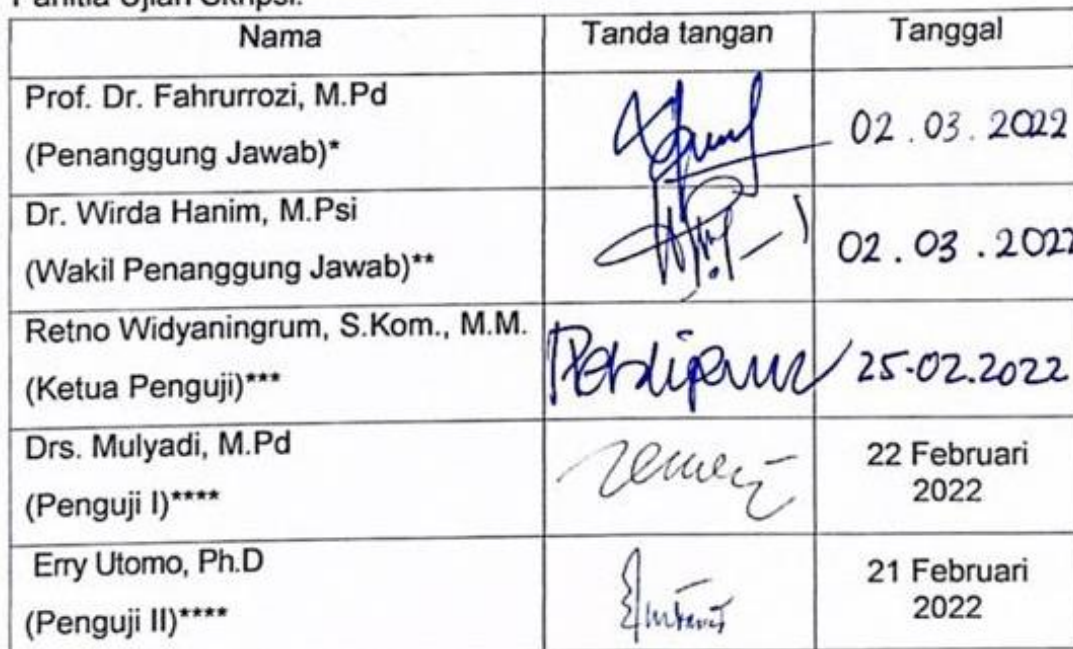 Panitia Ujian Skripsi:
Nama Tanda tangan Tanggal
Prof. Dr. Fahrurrozi, M.Pd
(Penanggung Jawab)*
02.03.2022
Dr. Wirda Hanim, M.Psi
(Wakil Penanggung Jawab)**
02.03.2022
Retno Widyaningrum, S.Kom., M.M.
(Ketua Penguji)***
25-02.2022
Drs. Mulyadi, M.Pd
(Penguji I)****
22 Februari
2022
Erry Utomo, Ph.D
(Penguji II)****
21 Februari
2022